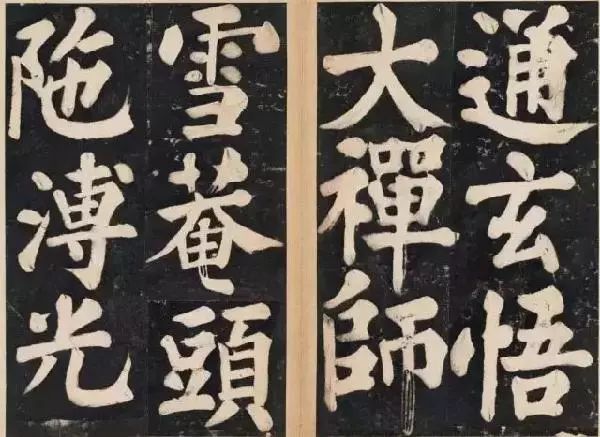 通玄悟
大禪師
雪菴頭
陁溥光